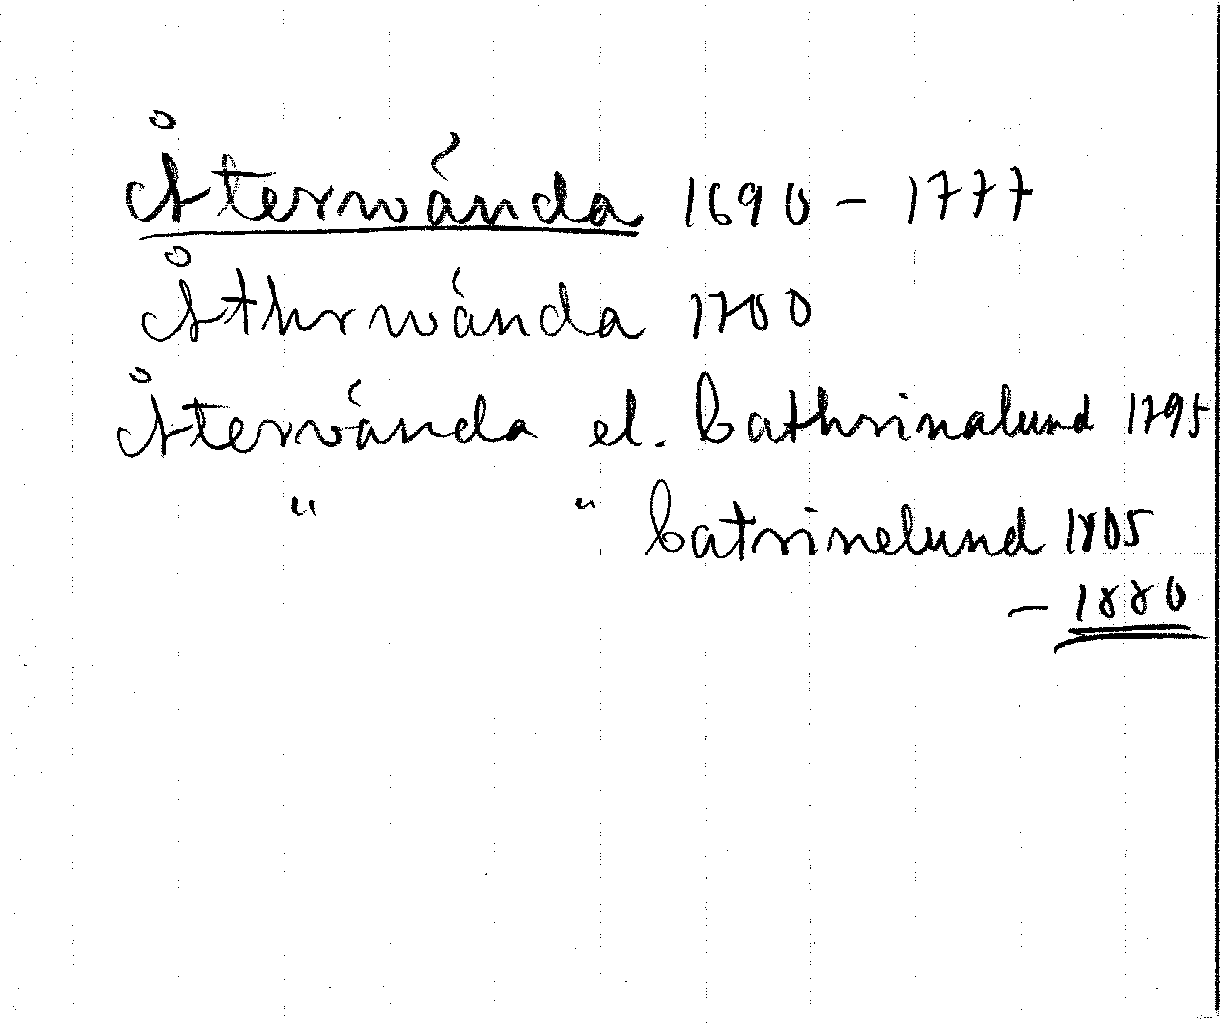 Återwända 1690 – 1777
Åthrwända 1700
Återvända el. Cathrinalund 1795
" " Catrinelund 1805
– 1880